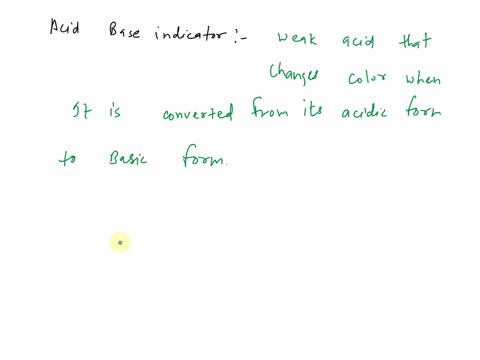 Acid Base indicator:- weak acid that
changes color when
It is converted from its acidic form
to Basic form.